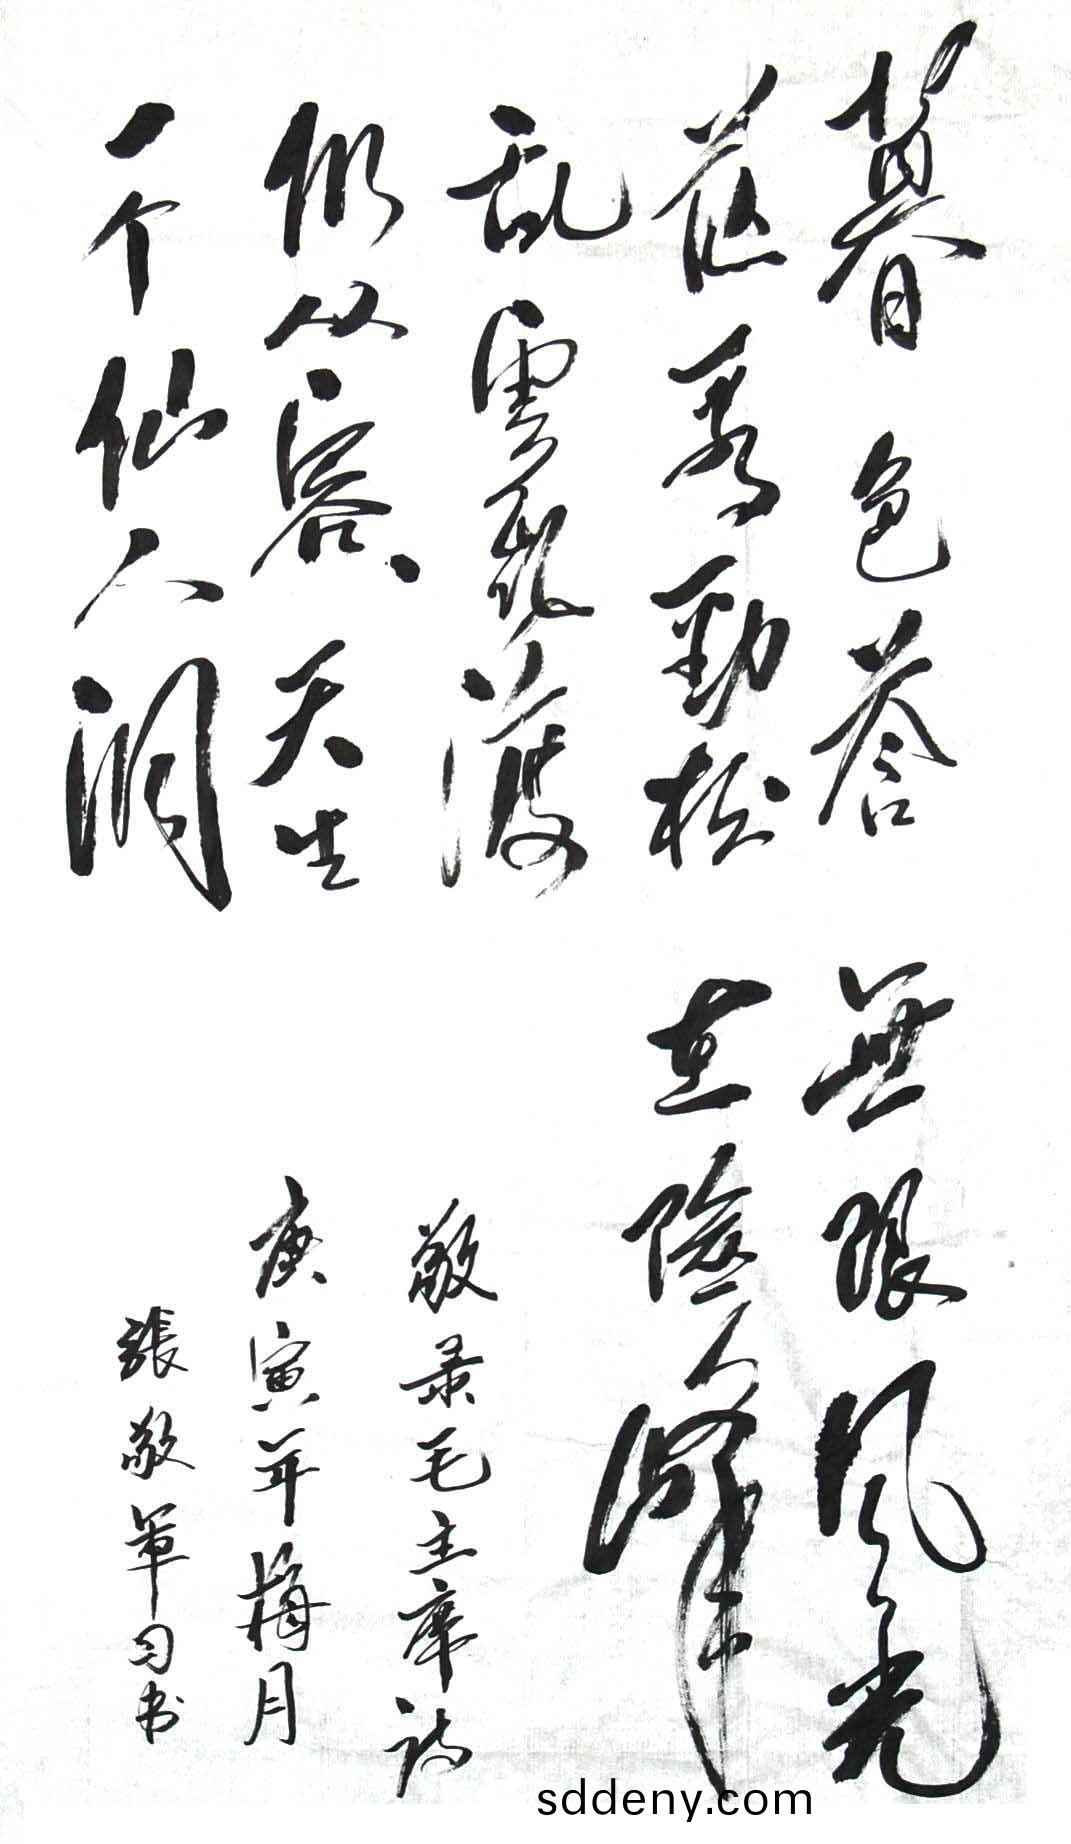 暮色蒼
茫看勁松
乱雲飛渡
仍从容、天生
一个仙人洞
無限风光
在險峰
敬录毛主席诗
庚寅年梅月
張敬軍习书
sddeny.com